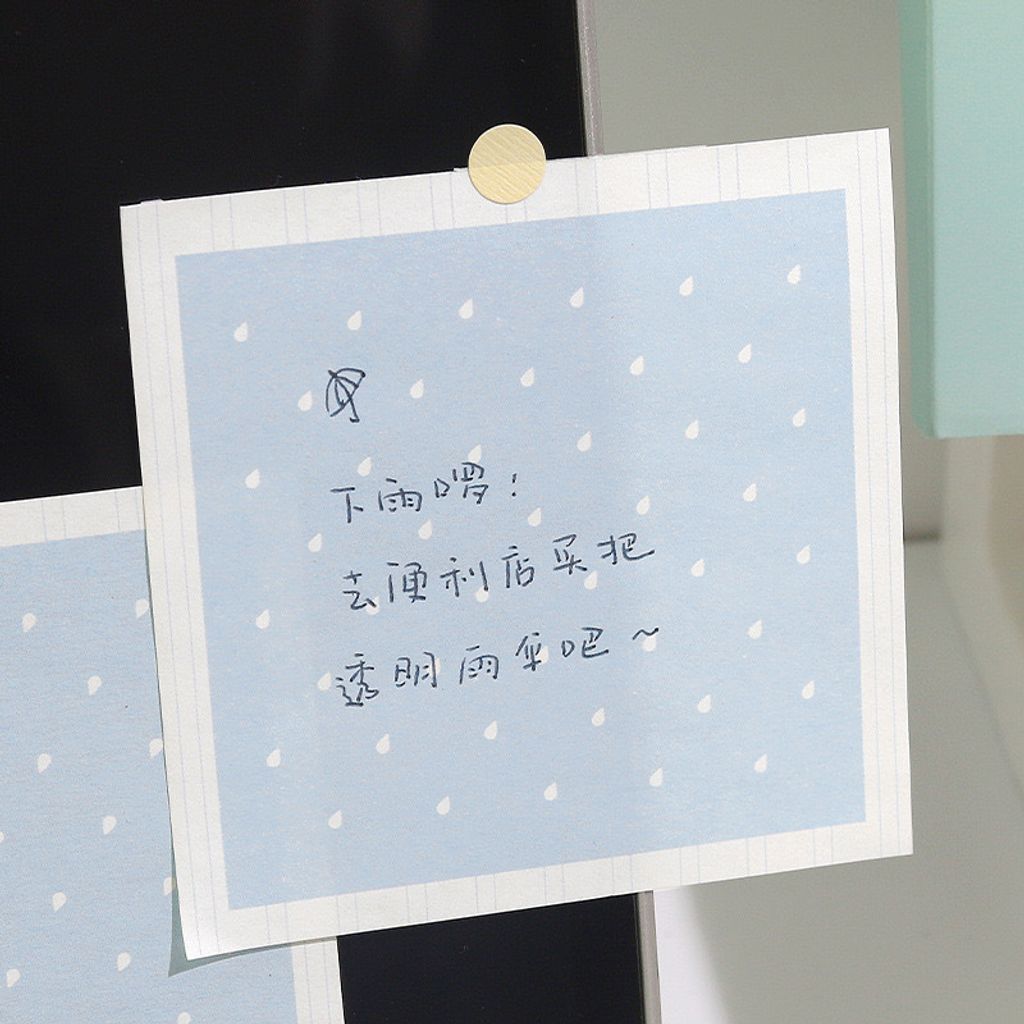 下雨啰！
去便利店买把
透明雨伞吧～